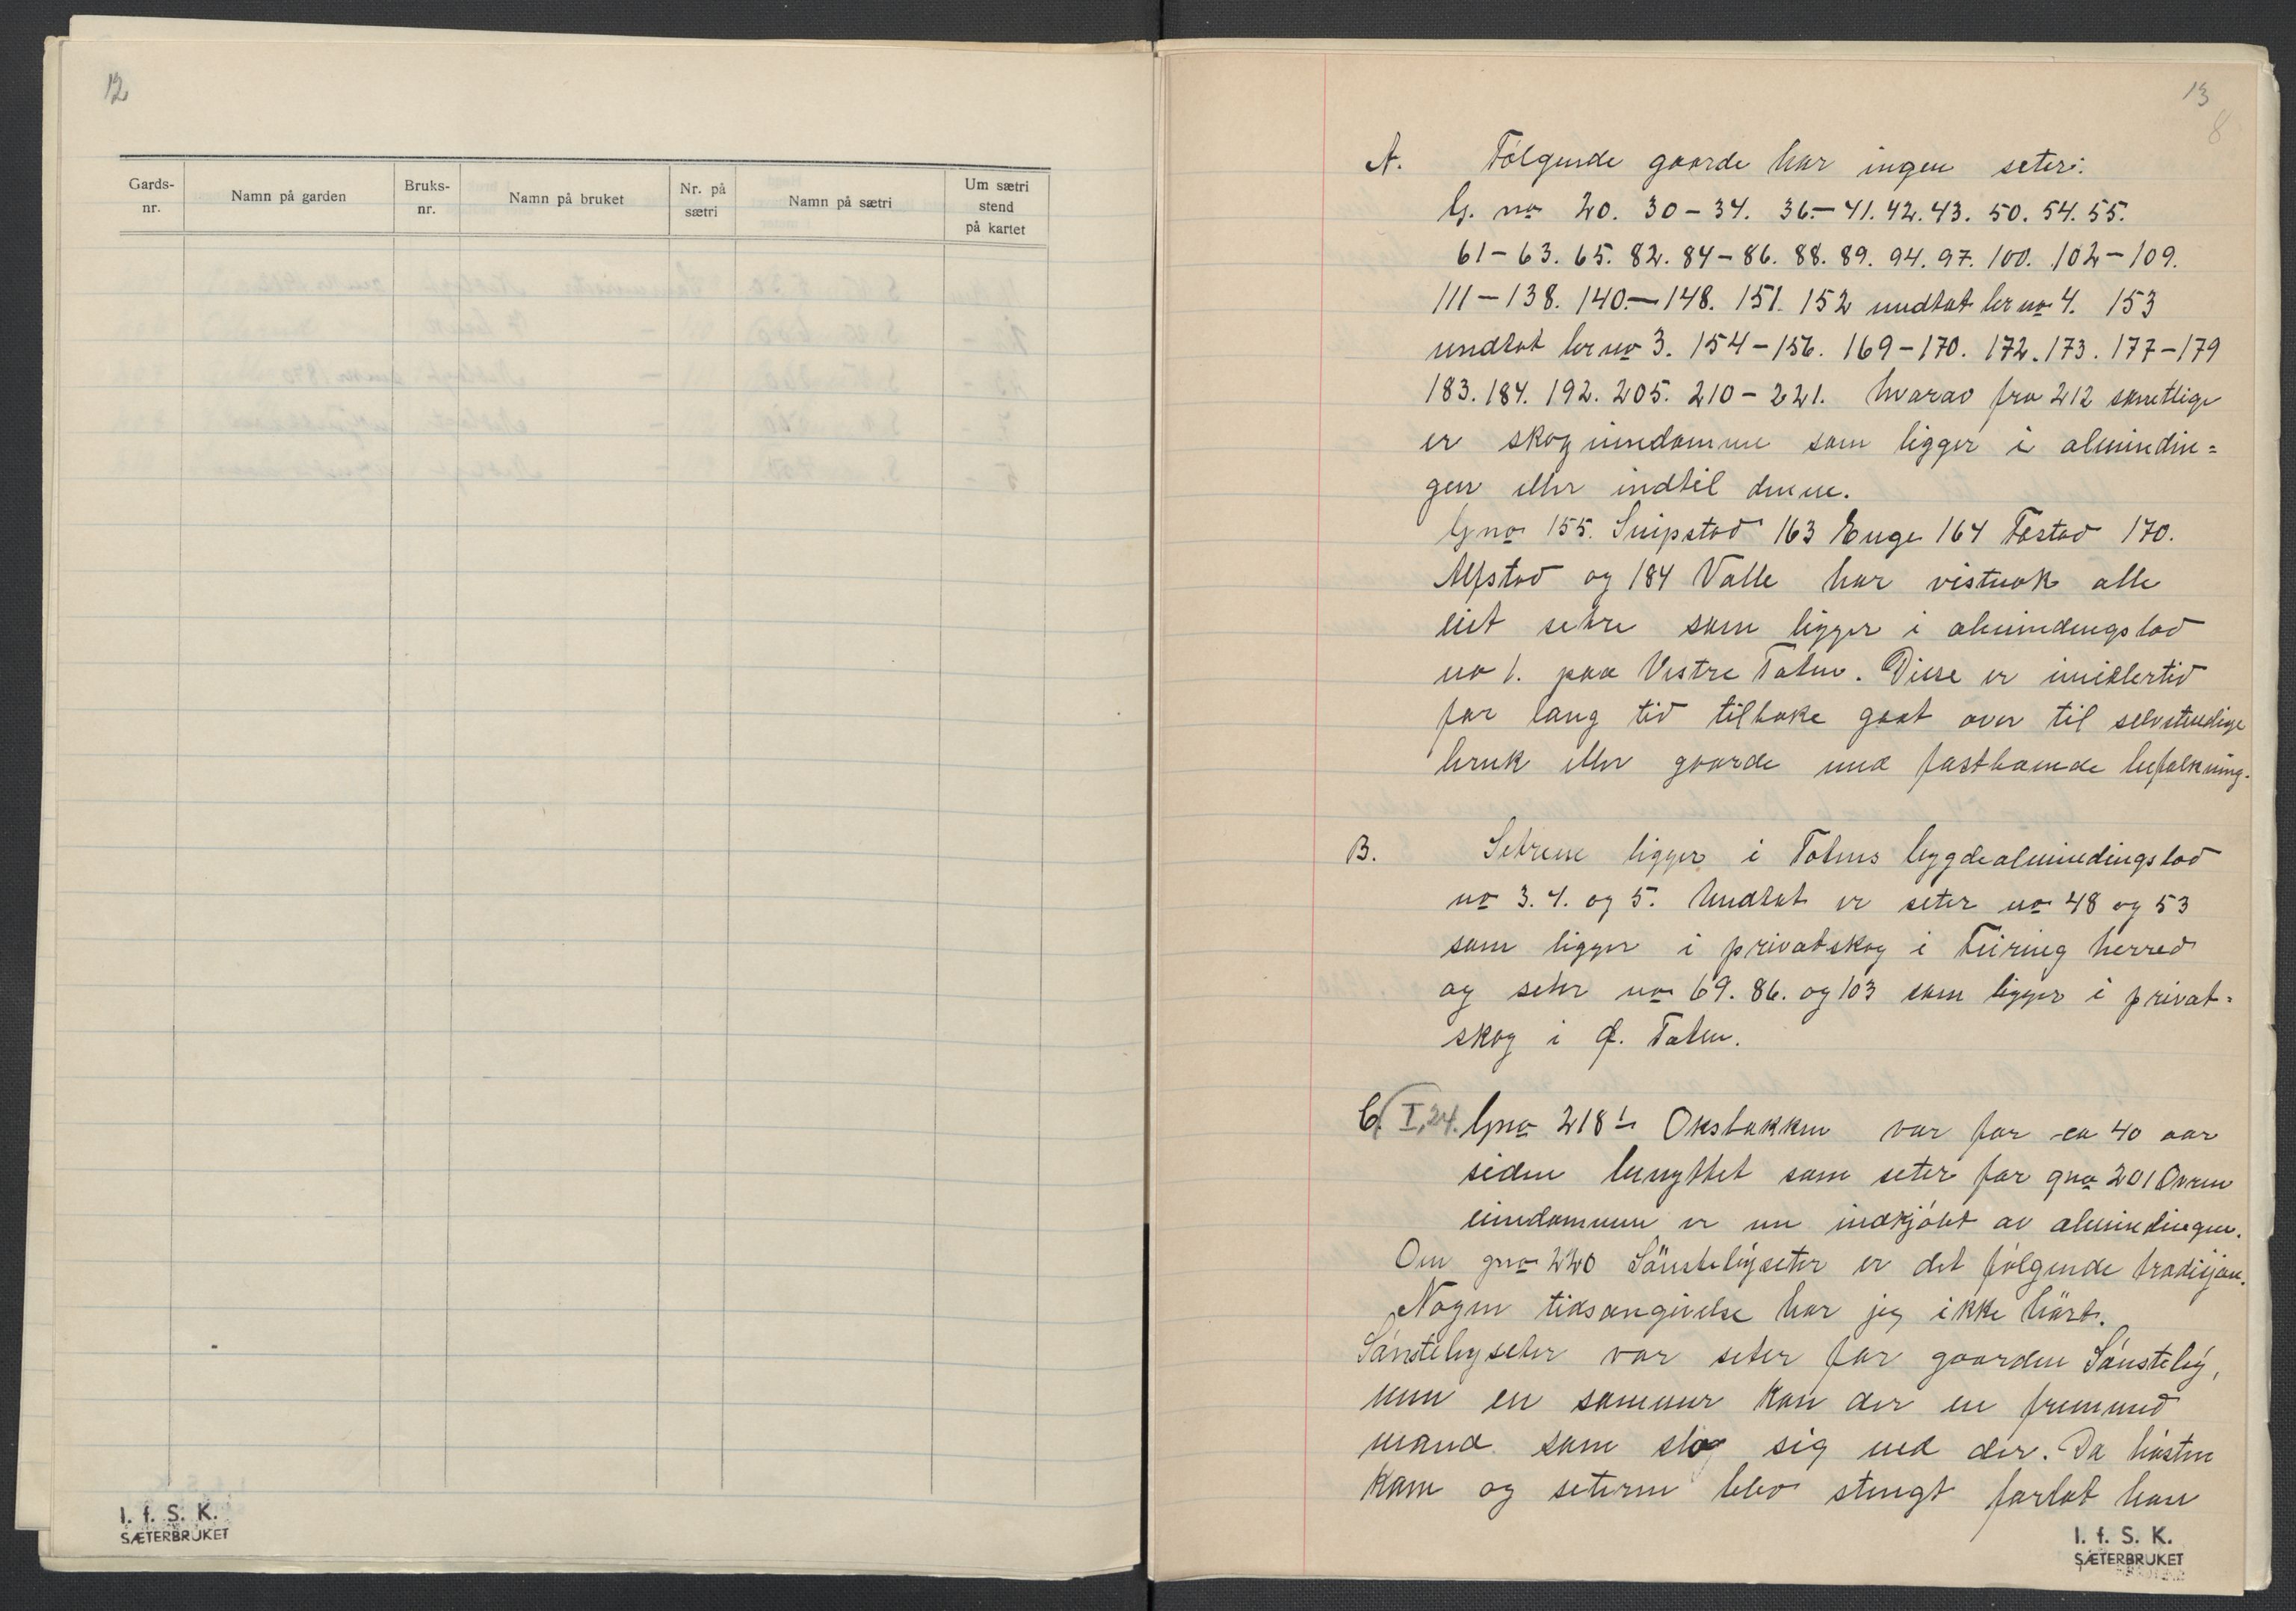 12
Gards-
nr.
Namn på garden
Bruks-
nr.
Namn på bruket
Nr. på
sætri
Namn på sætri
Um sætri
stend
på kartet
I. f. S. K.
SÆTERBRUKET
13
8
A. Følgende gaarde har ingen seter:
G. no 20. 30-34. 36.-41. 42. 43. 50. 54. 55.
61-63. 65. 82. 84-86. 88. 89. 94. 97. 100. 102-109.
111-138. 140.-148. 151. 152 undtat br no 4. 153
undtat br no 3. 154-156. 169-170. 172. 173. 177-179
183. 184. 192. 205. 210-221. hvorav fra 212 samtlige
er skogeiendomme som ligger i almindin=
gen eller indtil denne.
Gno 155. Snipstad 163 Enge 164 Fostad 170.
Alfstad og 184 Valle har vistnok alle
eiet setre som ligger i almindingslod
no 1. paa Vestre Toten. Disse er imidlertid
for lang tid tilbake gaat over til selvstendige
bruk eller gaarde med fastboende befolkning.
B. Setrene ligger i Totens bygdealmindingslod
no 3. 4. og 5. Undtat er seter no 48 og 53
som ligger i privatskog i Feiring herred
og seter no 69. 86. og 103 som ligger i privat=
skog i Ø. Toten.
C. (I, 24. Gno 218 1 Oksbakken var for ca 40 aar
siden benyttet som seter for gno 201 Ovren
eiendommen er nu indkjøbt av almindingen.
Om gno 220 Sønstebyseter er det følgende tradisjon.
Nogen tidsangivelse har jeg ikke hørt.
Sønstebyseter var seter for gaarden Sønsteby,
men en sommer kom der en fremmed
mand som slog sig ned der. Da høsten
kom og seteren blev stengt forlot han
I. f. S. K.
SÆTERBRUKET